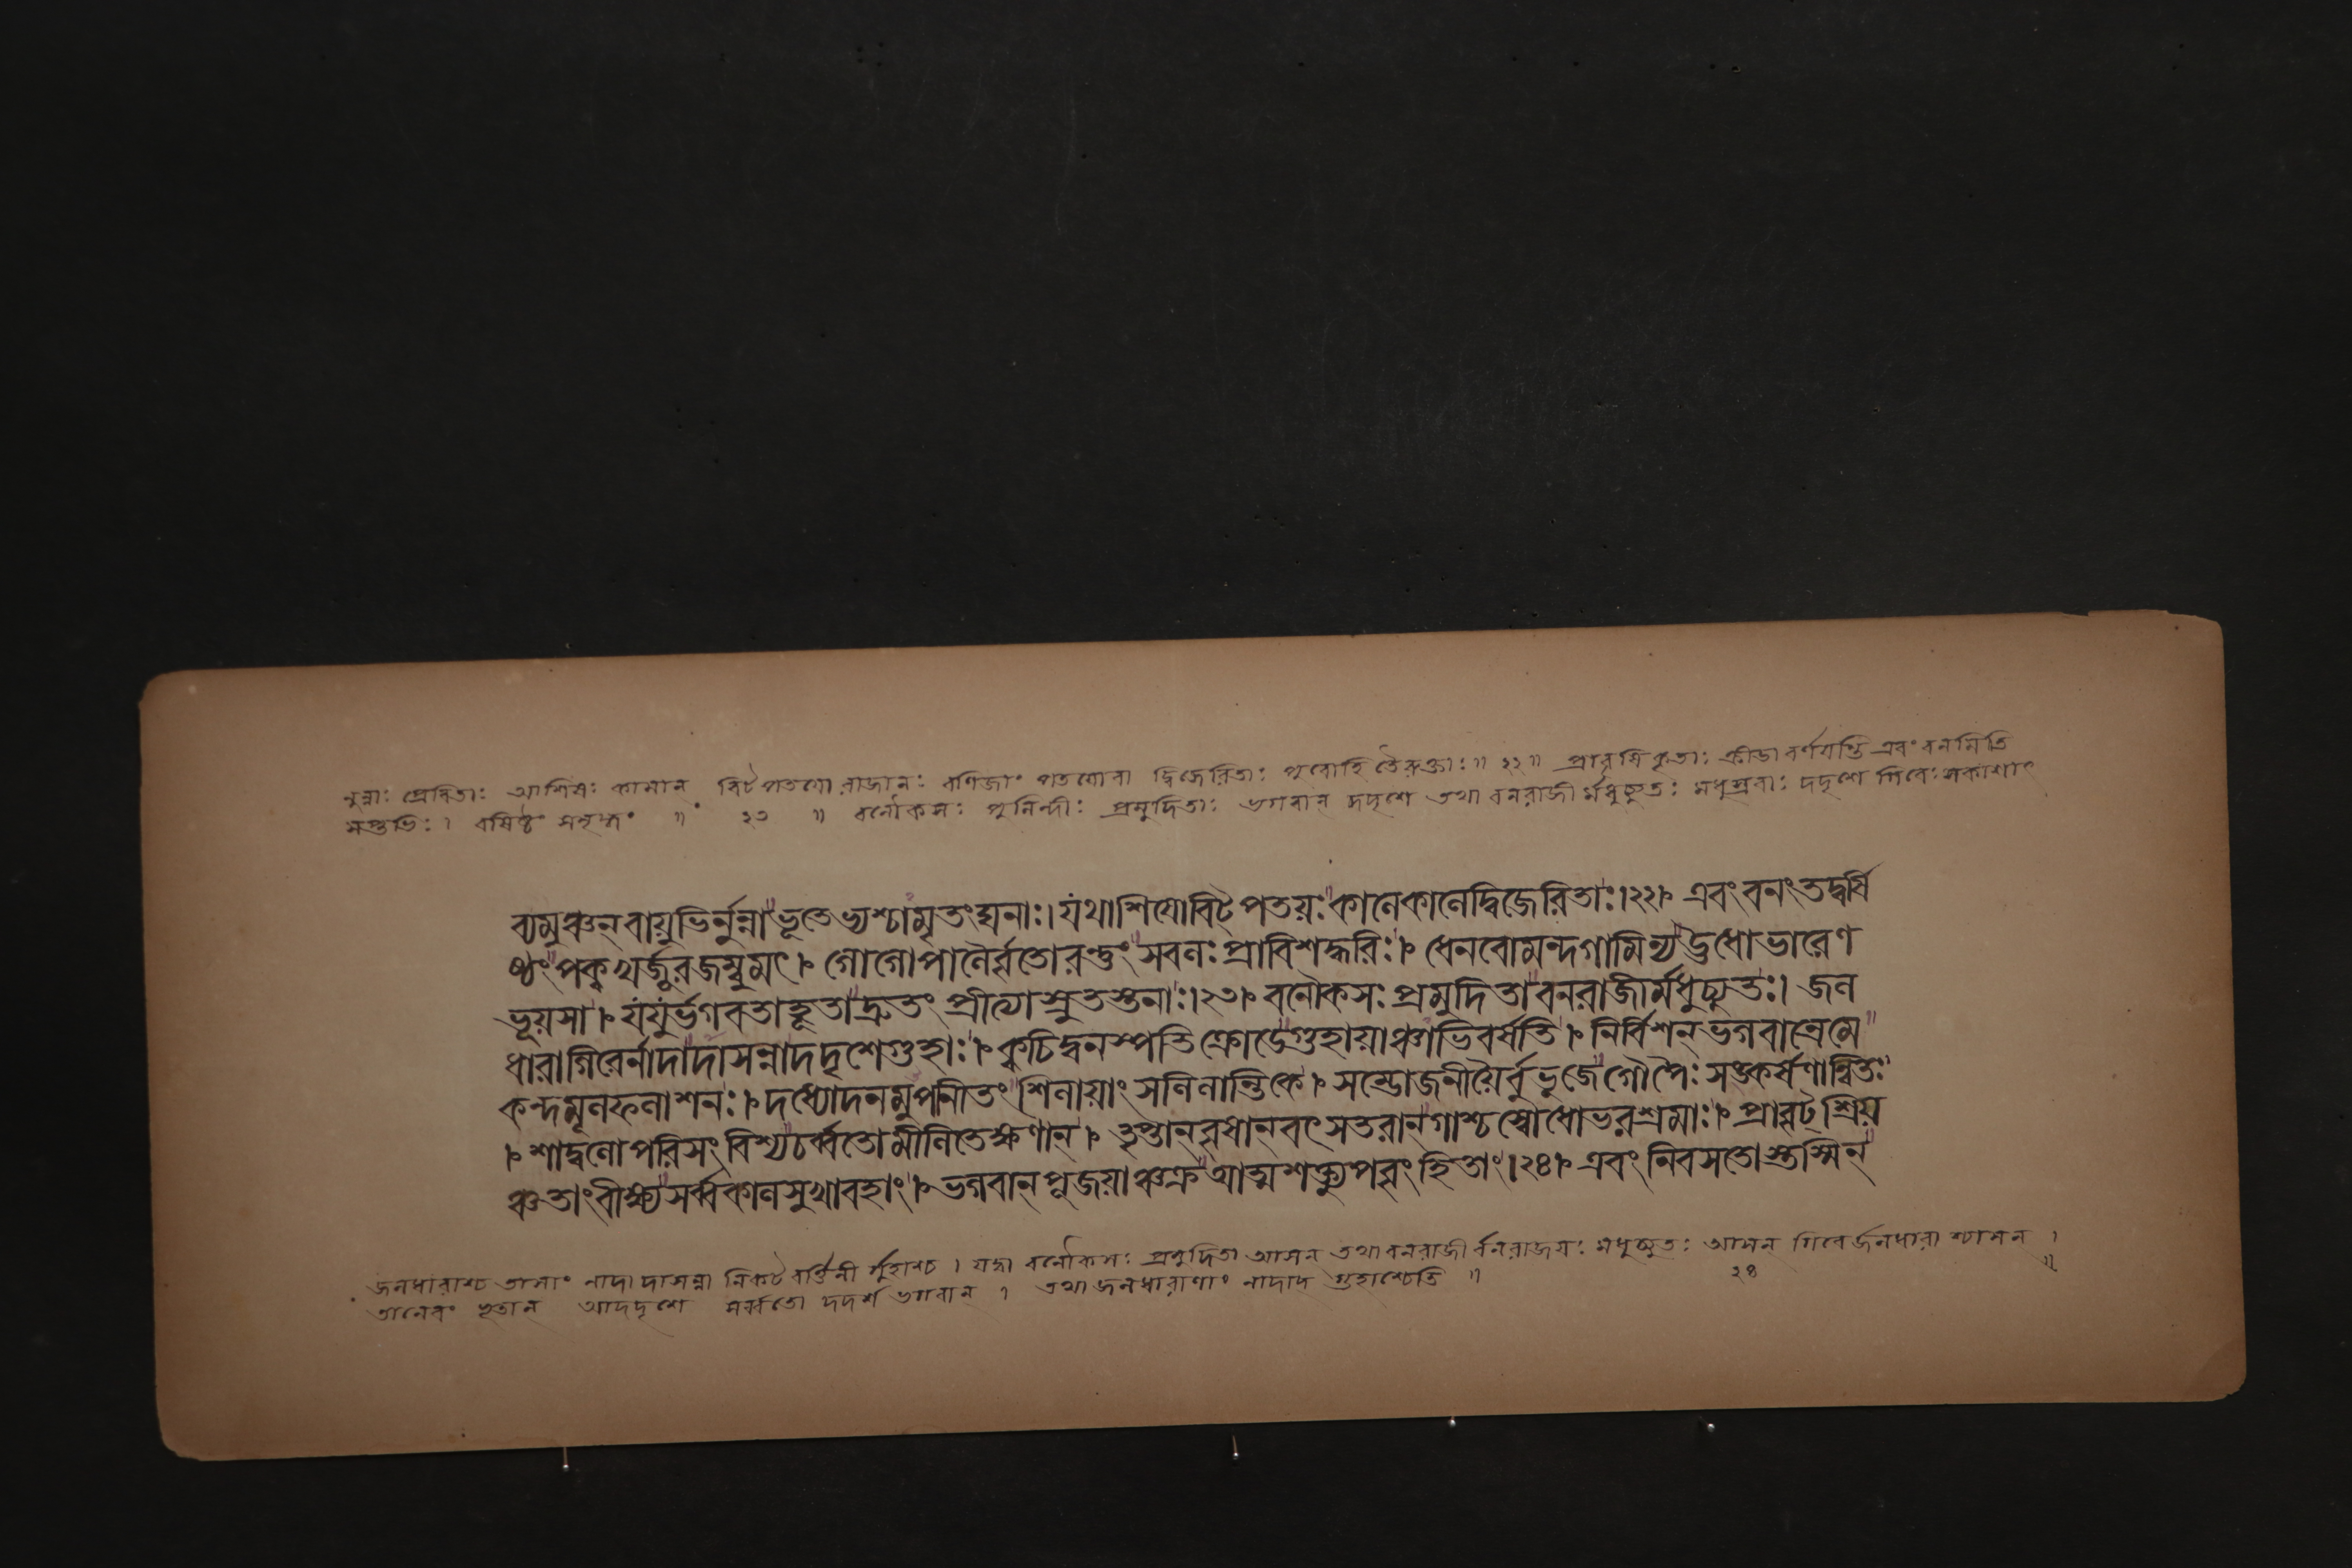 নুন্নাঃ প্রেরিতাঃ আশিষঃ কামান্ বিটপতয়ো রাজানঃ বণিজাং পতয়োবা দ্বিজেরিতাঃ পুরোহিতৈরুক্তাঃ॥ ২২॥ প্রাবৃষি কৃতাঃ ক্রীডা বর্ণয়তি এবং বনমিতি
সপ্তভিঃ। বর্ষিষ্ঠং সমৃদ্ধং ॥ ২৩ ॥ বনৌকসঃ পুলিন্দীঃ প্রমুদিতাঃ ভগবান্ দদৃশে তথা বনরাজীর্মধুচ্যুতঃ মধুস্রবাঃ দদৃশে গিরেঃ সকাশাৎ
ব্যমুঞ্চন্ বায়ুভির্নুন্না ভূতেভ্যশ্চামৃতংঘনাঃ। যথাশিষোবিট্পতয়ঃ কালেকালেদ্বিজেরিতাঃ।২২। এবংবনংতদ্বর্ষি
ষ্ঠংপক্বখর্জূরজম্বুমৎ। গোগোপালৈর্বৃতোরন্তুং সবলঃ প্রাবিশদ্ধরিঃ। ধেনবোমন্দগামিন্য ঊধোভারেণ
ভূয়সা। যযুর্ভগবতাহূতা দ্রুতং প্রীত্যাস্নুতস্তনাঃ।২৩। বনৌকসঃ প্রমুদিতা বনরাজীর্মধুচ্যুতঃ। জল
ধারাগিরের্নাদাদাসন্নাদদৃশেগুহাঃ। ক্বচিদ্বনস্পতিক্রোডেগুহায়াঞ্চাভিবর্ষতি। নির্বিশন্ ভগবান্রেমে
কন্দমূলফলাশনঃ। দধ্যোদনমুপনীতং শিলায়াং সলিলান্তিকে। সম্ভোজনীয়ৈর্বুভুজেগোপৈঃ সঙ্কর্ষণান্বিতঃ
। শাদ্বলোপরিসংবিশ্য চর্ব্বতোমীলিতেক্ষণান্। তৃপ্তান্বৃষান্বৎসতরান্গাশ্চস্বোধোভরশ্রমাঃ। প্রাবৃট্শ্রিয়
ঞ্চতাংবীক্ষ্যসর্ব্বকালসুখাবহাং। ভগবান্ পূজয়াঞ্চক্রে আত্মশক্ত্যুপবৃংহিতাং।২৪। এবং নিবসতোস্তস্মিন্
জলধারাশ্চ তাসাং নাদাদাসন্না নিকটবর্ত্তিনীর্গুহাশ্চ। যদ্বা বনৌকসঃ প্রমুদিতা আসন্ তথা বনরাজীর্বনরাজয়ঃ মধুচ্যুতঃ আসন্ গিরের্জলধারাশ্চাসন্।
তানেবং ভূতান্ আদদৃশে সর্ব্বতো দদর্শ ভগবান্। তথা জলধারাণাং নাদাদ গুহাশ্চেতি ॥ ২৪ ॥